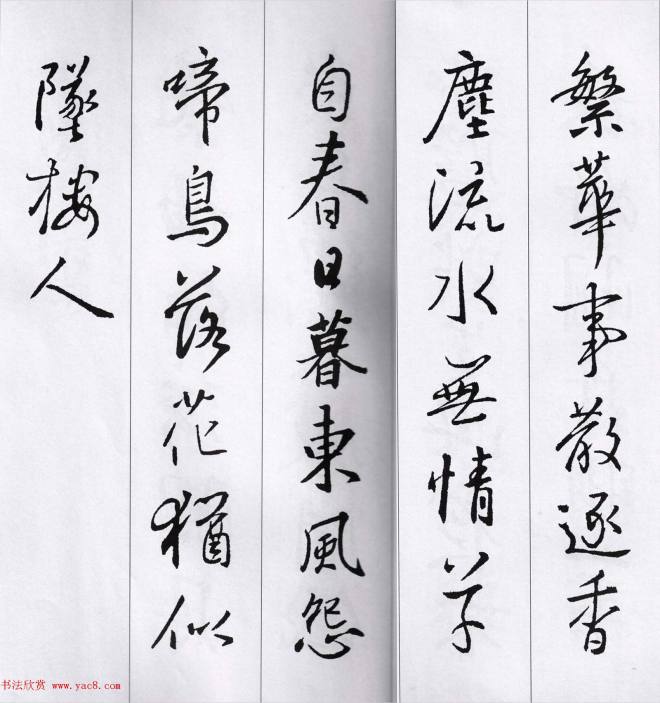 繁華事散逐香
塵流水無情草
自春日暮東風怨
啼鳥落花猶似
墜樓人
书法欣赏 www.yac8.com